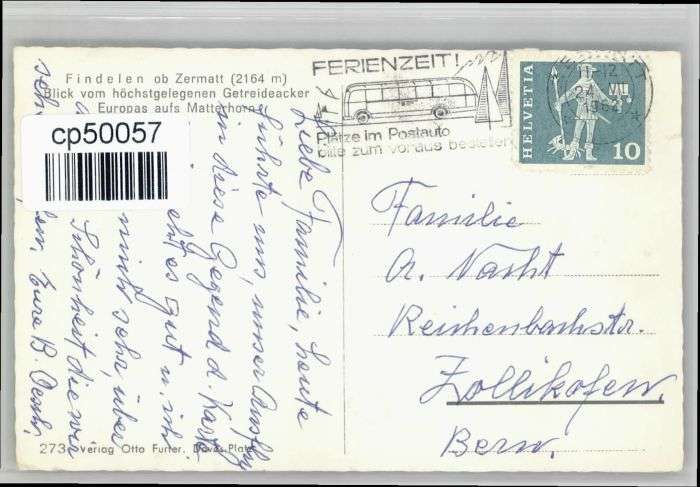 Findelen ob Zermatt (2164 m)
Blick vom höchstgelegenen Getreideacker
Europas aufs Matterhorn
cp50057
FERIENZEIT!
Plätze im Postauto
bitte zum voraus bestellen
HELVETIA
10
Liebe Familie, heute
führte uns unser Ausflug
in diese Gegend d. Karte
geht es gut u. ich
mich sehr, über
Schönheit die wir
Eure B.
Familie
A. Nacht
Reichenbachstr.
Zollikofen.
Bern.
273 Verlag Otto Furter, Davos-Platz